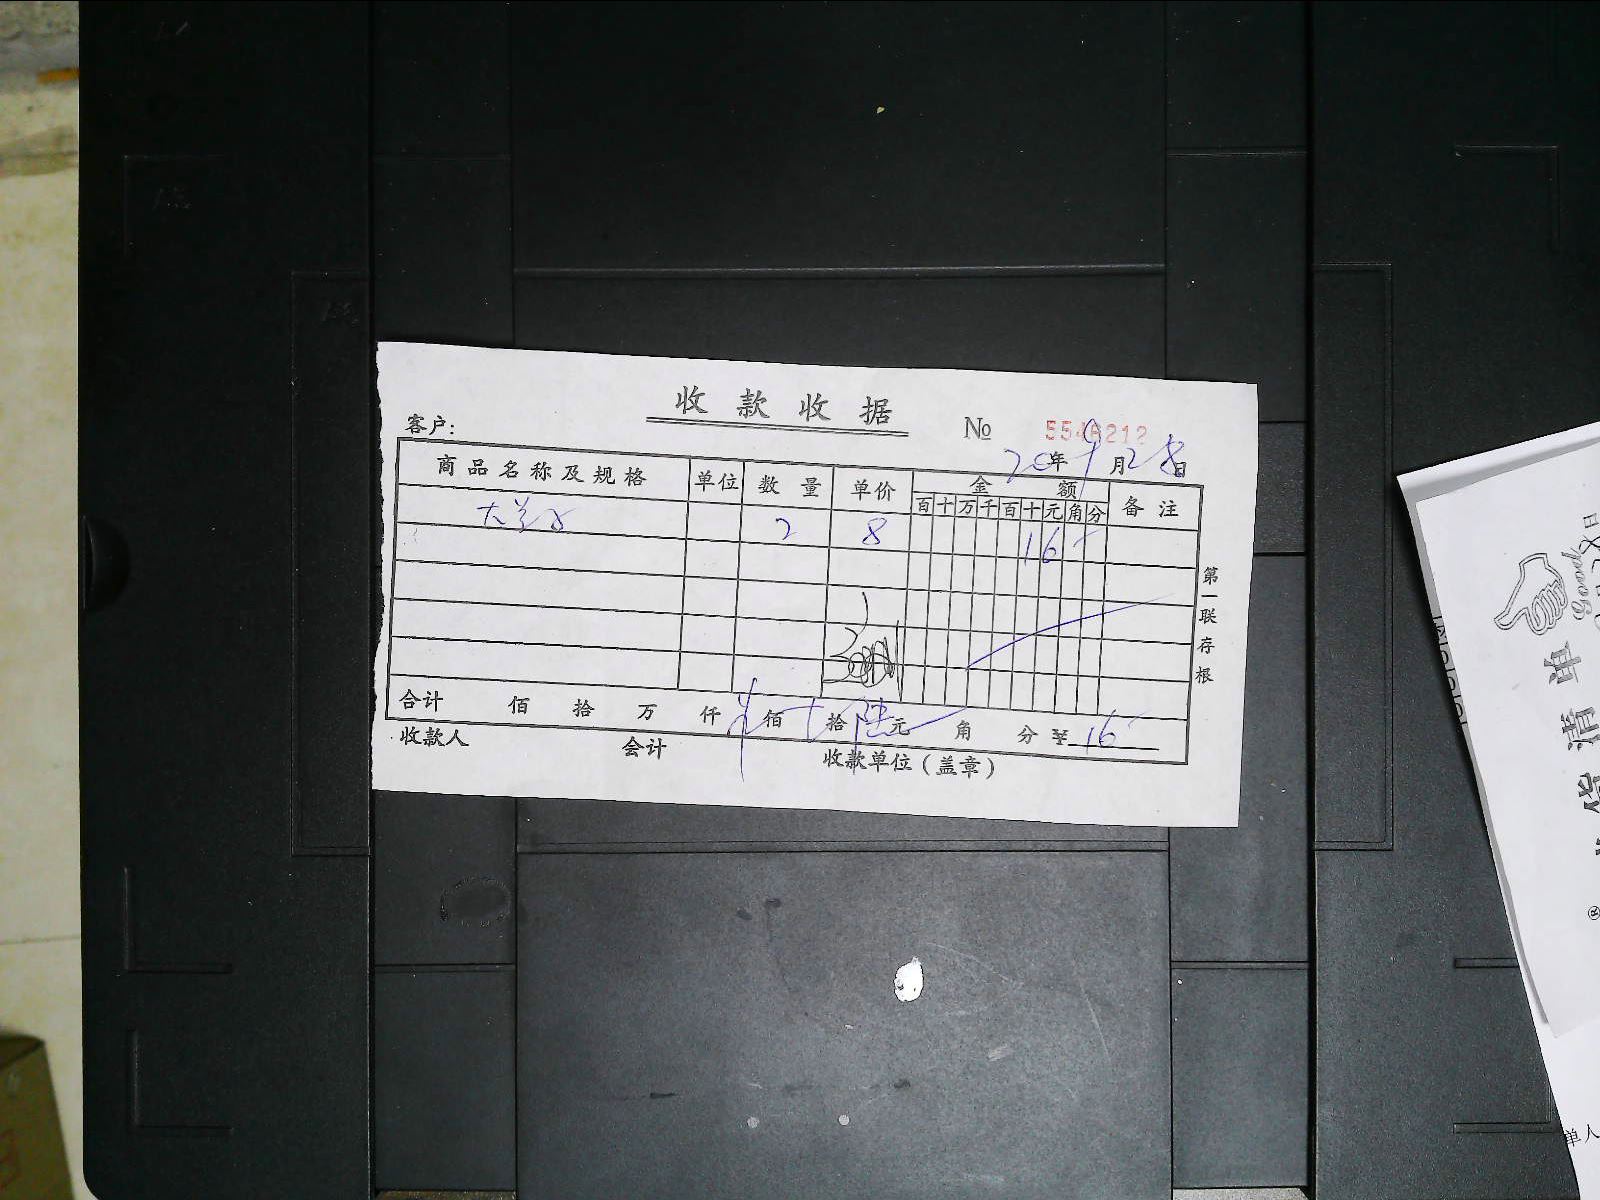 收款收据
客户:
№ 5546212
20年9月28日
商品名称及规格 单位 数量 单价 金额 备注
百十万千百十元角分
2 8 16-
第一联存根
合计 佰 拾 万 仟 佰 拾 元 角 分 ¥ 16-
收款人 会计 收款单位(盖章)
Good
清单
®
单人